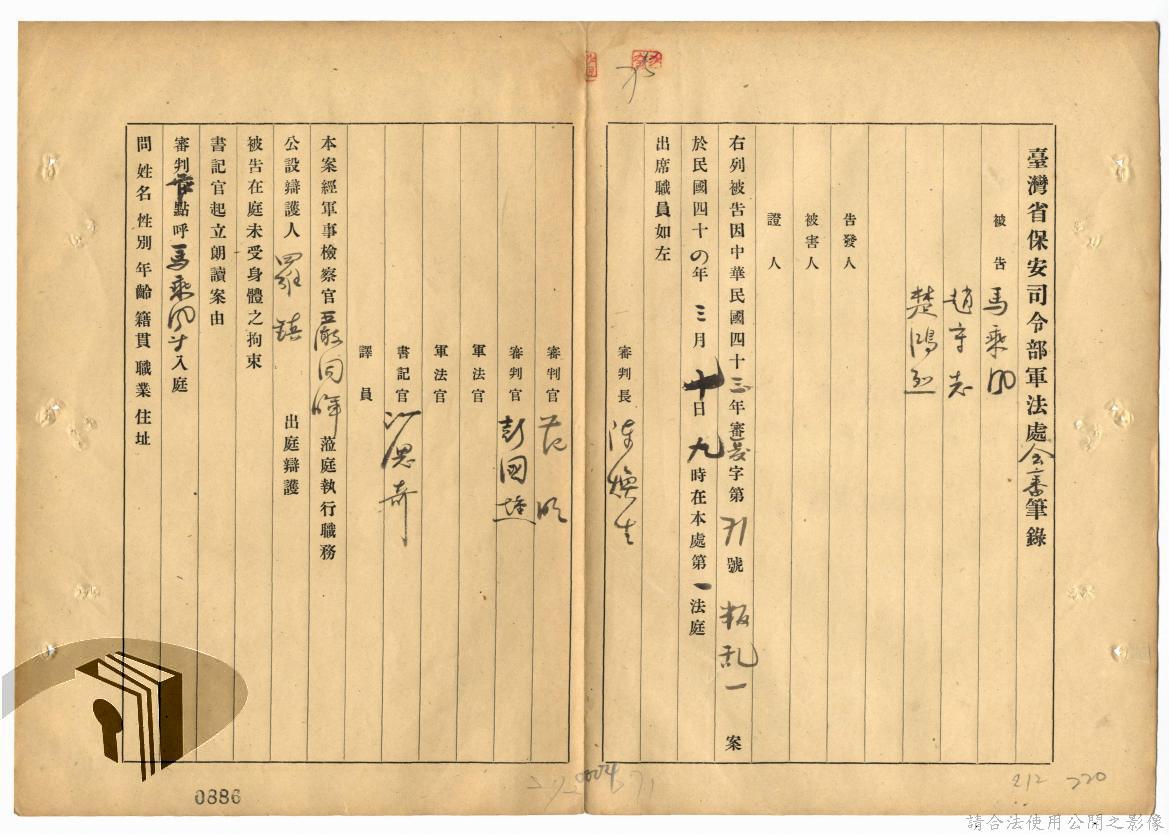 臺灣省保安司令部軍法處公審筆錄
被告 馬乘風
趙守志
楚鴻烈
告發人
被害人
證人
右列被告因中華民國四十三年審字第71號 叛乱一案
於民國四十四年三月十日九時在本處第一法庭
出席職員如左
審判長
審判官 范明
審判官 彭國壎
軍法官
軍法官
書記官 思奇
譯員
本案經軍事檢察官 蒞庭執行職務
公設辯護人 羅鎮 出庭辯護
被告在庭未受身體之拘束
書記官起立朗讀案由
審判長點呼馬乘風等入庭
問姓名性別年齡籍貫職業住址
0886
0004
71
212 220
請合法使用公開之影像